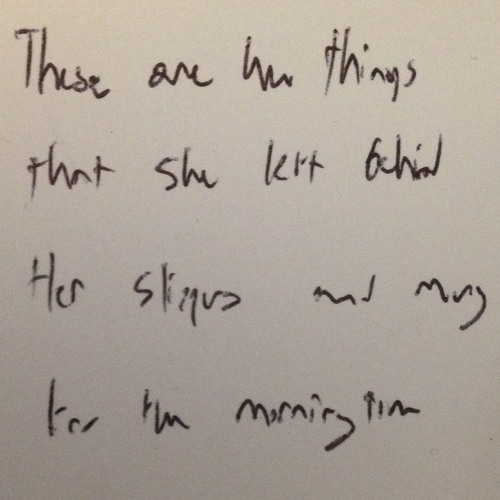 These are her things
that she left behind
Her slippers and mug
for the morning time